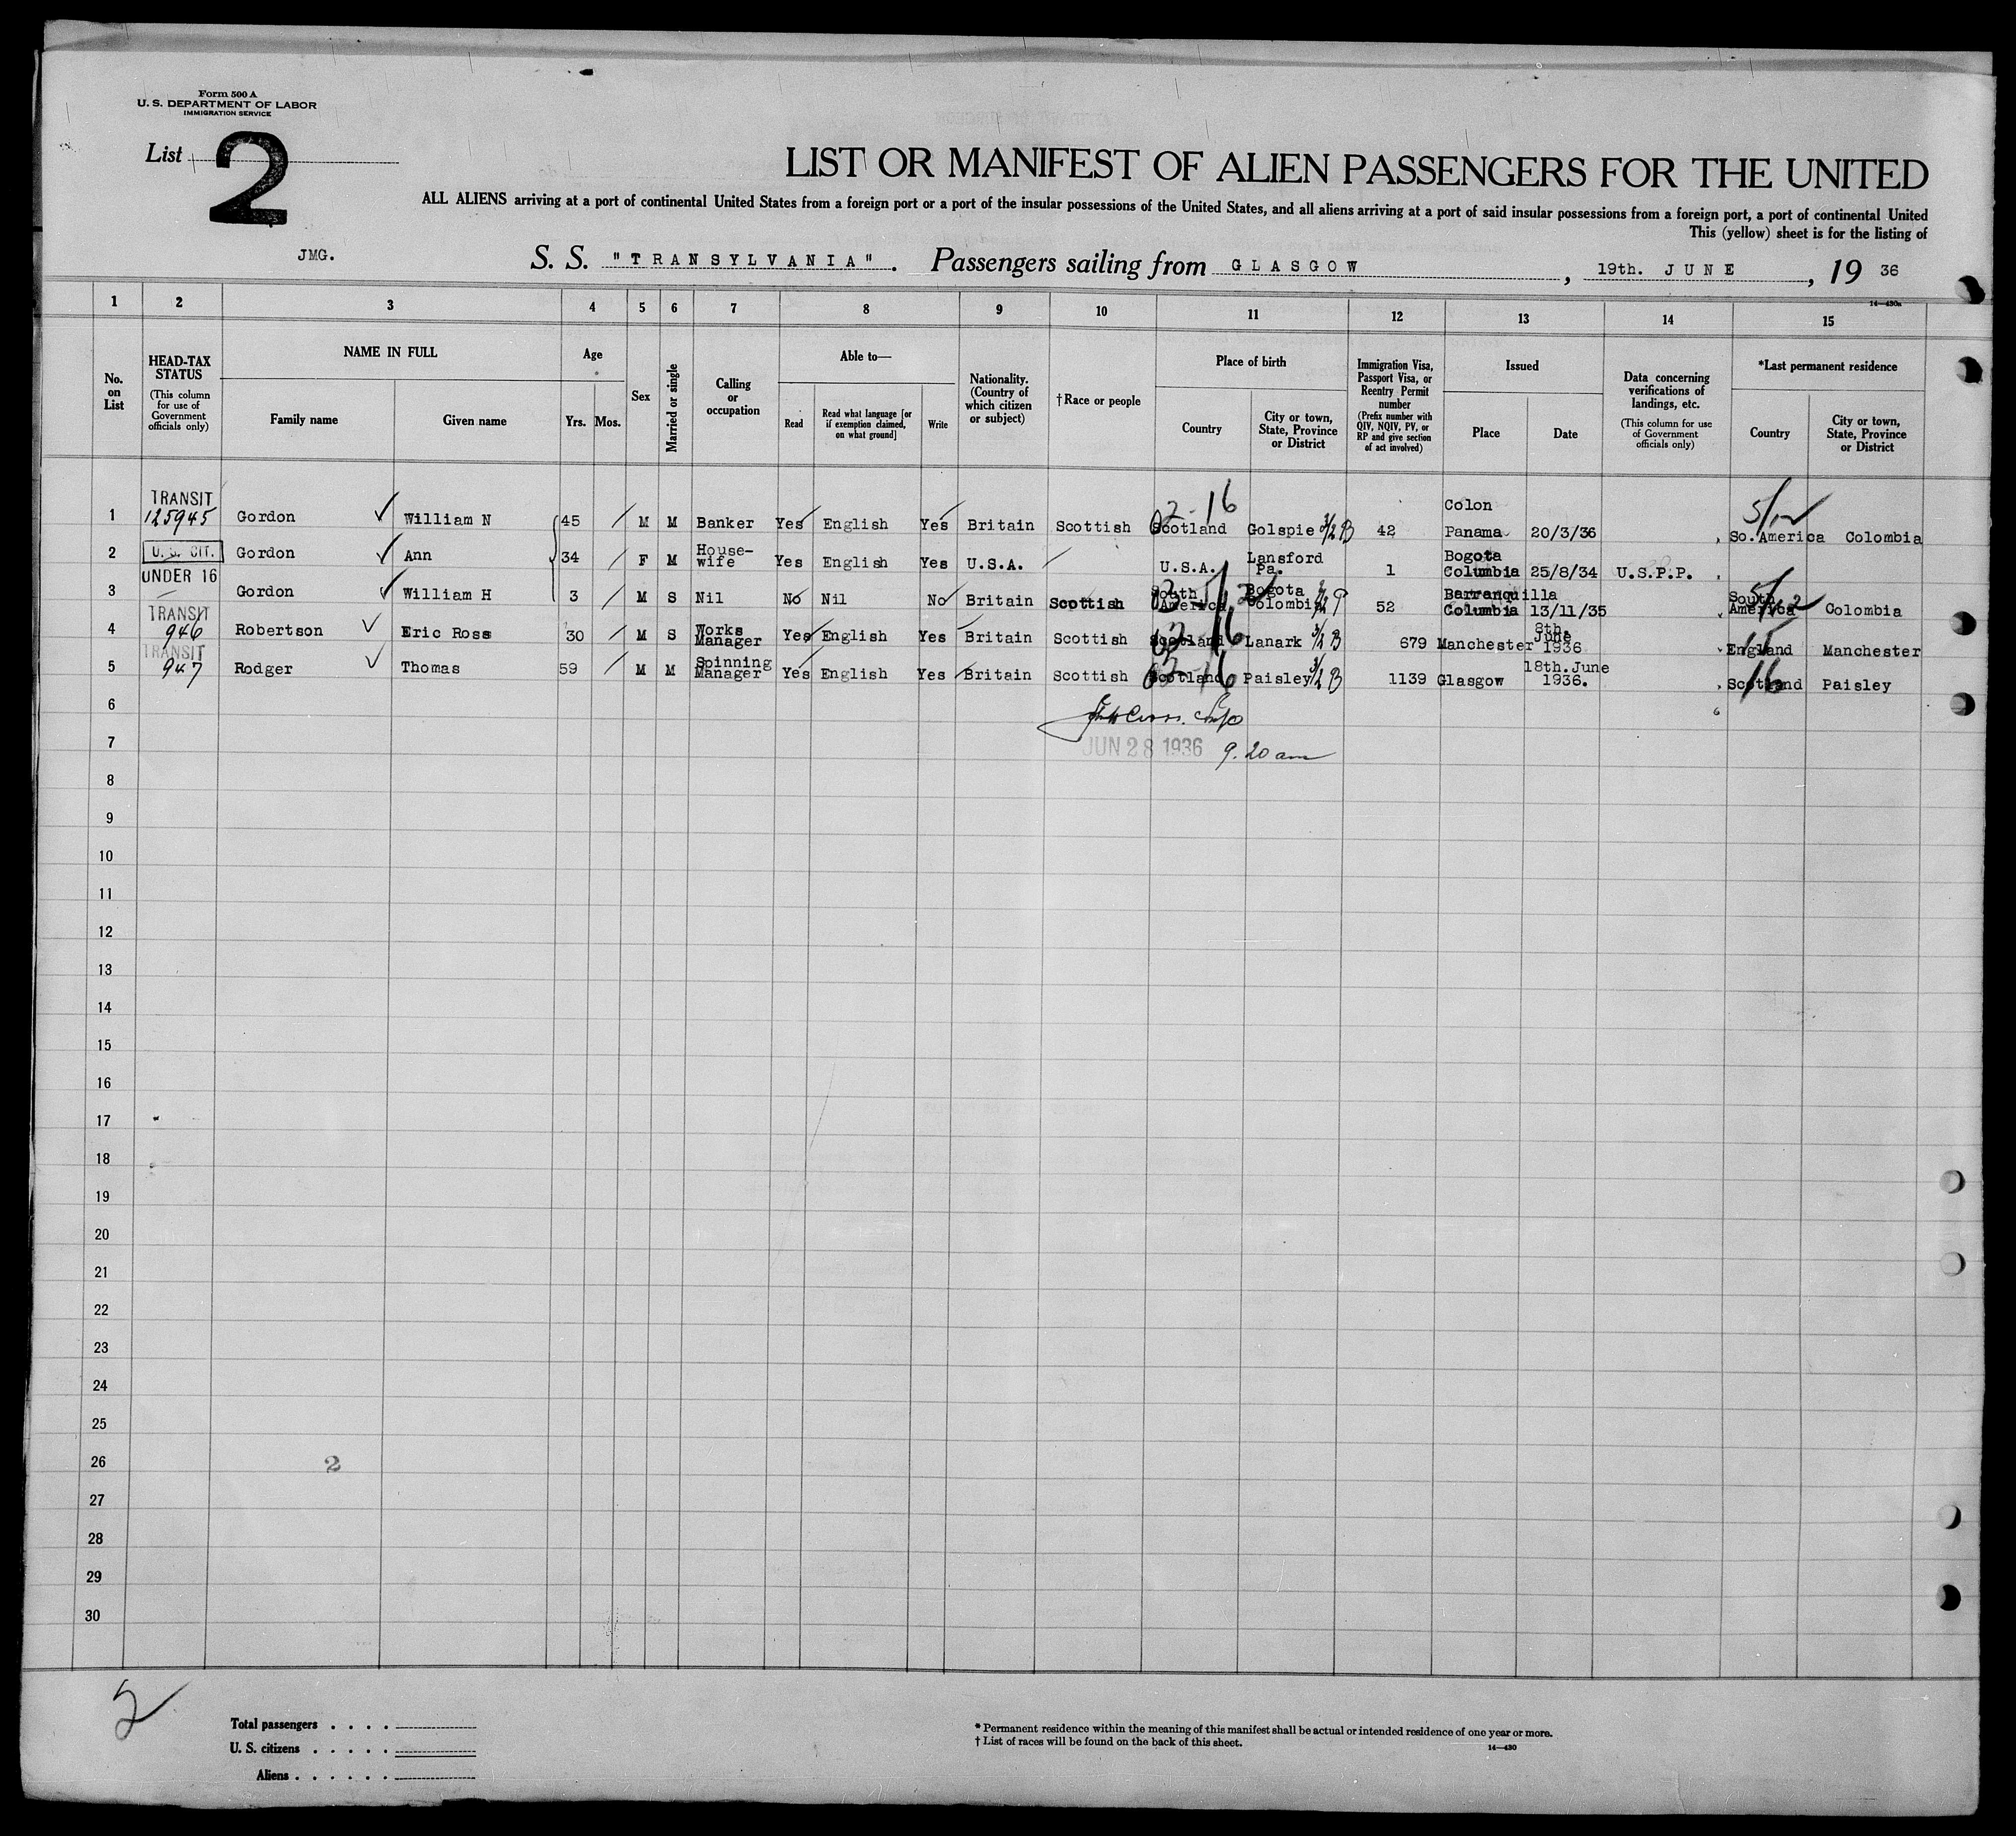 Form 500 A
U. S. DEPARTMENT OF LABOR
IMMIGRATION SERVICE
List 2
LIST OR MANIFEST OF ALIEN PASSENGERS FOR THE UNITED
ALL ALIENS arriving at a port of continental United States from a foreign port or a port of the insular possessions of the United States, and all aliens arriving at a port of said insular possessions from a foreign port, a port of continental United
This (yellow) sheet is for the listing of
JMG.
S. S. "TRANSYLVANIA". Passengers sailing from GLASGOW, 19th. JUNE, 19 36
14—430a
1 2 3 4 5 6 7 8 9 10 11 12 13 14 15
No. on List
HEAD-TAX STATUS
(This column for use of Government officials only)
NAME IN FULL
Family name
Given name
Age
Yrs. Mos.
Sex
Married or single
Calling or occupation
Able to—
Read
Read what language [or if exemption claimed, on what ground]
Write
Nationality. (Country of which citizen or subject)
†Race or people
Place of birth
Country
City or town, State, Province or District
Immigration Visa, Passport Visa, or Reentry Permit number
(Prefix number with QIV, NQIV, PV, or RP and give section of act involved)
Issued
Place
Date
Data concerning verifications of landings, etc.
(This column for use of Government officials only)
*Last permanent residence
Country
City or town, State, Province or District
1 TRANSIT 125945 Gordon William N 45 M M Banker Yes English Yes Britain Scottish Scotland Golspie 42 Colon Panama 20/3/36 So. America Colombia
2 U. S. CIT. Gordon Ann 34 F M House-wife Yes English Yes U.S.A. U.S.A. Lansford Pa. 1 Bogota Columbia 25/8/34 U.S.P.P.
3 UNDER 16 Gordon William H 3 M S Nil No Nil No Britain Scottish South America Bogota Colombia 52 Barranquilla Columbia 13/11/35 South America Colombia
4 TRANSIT 946 Robertson Eric Ross 30 M S Works Manager Yes English Yes Britain Scottish Scotland Lanark 679 Manchester 8th. June 1936 England Manchester
5 TRANSIT 947 Rodger Thomas 59 M M Spinning Manager Yes English Yes Britain Scottish Scotland Paisley 1139 Glasgow 18th.June 1936. Scotland Paisley
6
7 JUN 28 1936 9.20 am
8
9
10
11
12
13
14
15
16
17
18
19
20
21
22
23
24
25
26 2
27
28
29
30
2
Total passengers . . . .
U. S. citizens . . . . .
Aliens . . . . . .
* Permanent residence within the meaning of this manifest shall be actual or intended residence of one year or more.
† List of races will be found on the back of this sheet.
14—430